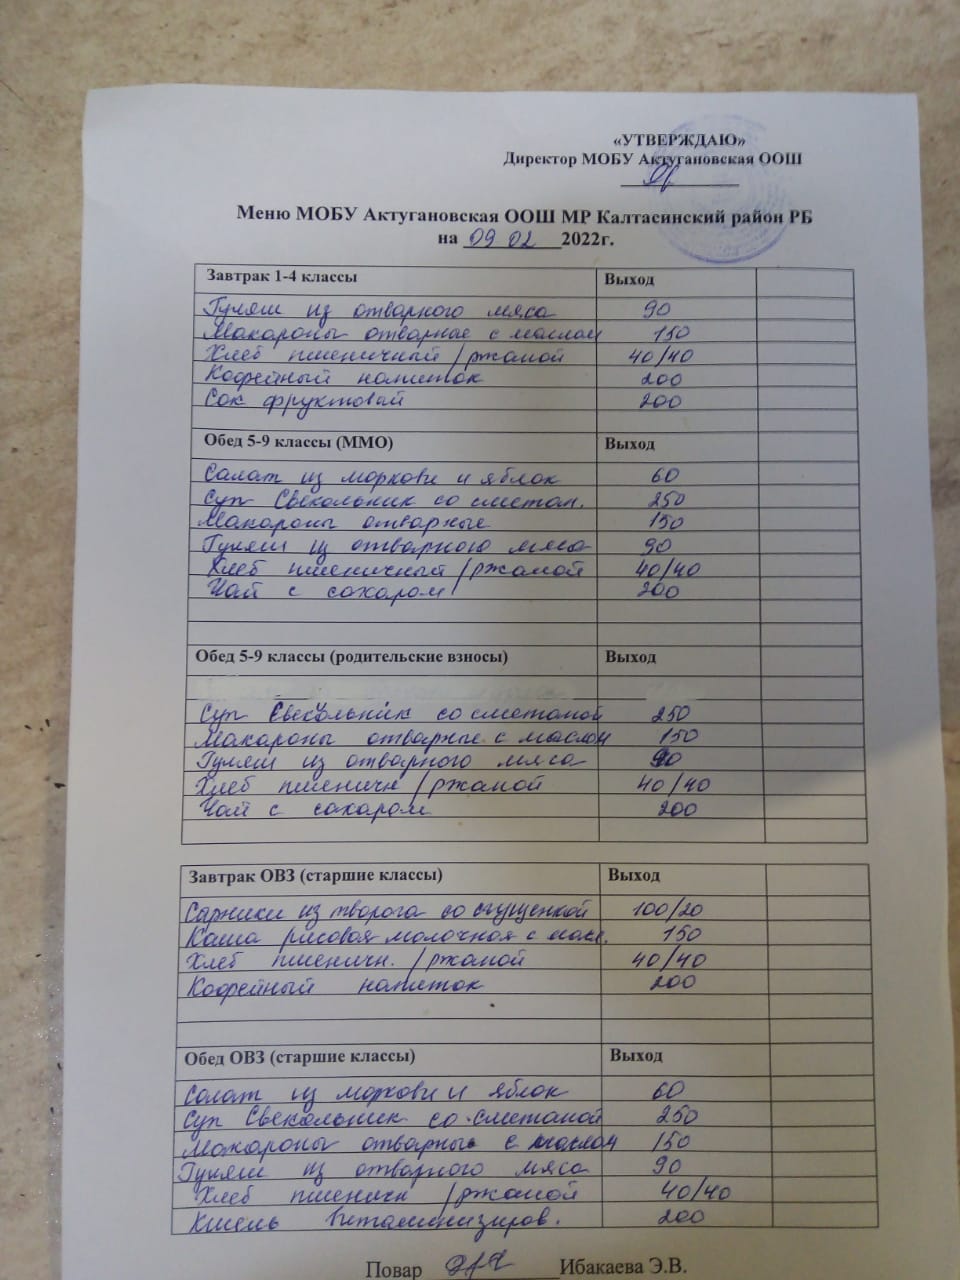 «УТВЕРЖДАЮ»
Директор МОБУ Актугановская ООШ
Меню МОБУ Актугановская ООШ МР Калтасинский район РБ
на 09 02 2022г.
Завтрак 1-4 классы Выход
Гуляш из отварного мяса 90
Макароны отварные с маслом 150
Хлеб пшеничный/ржаной 40/40
Кофейный напиток 200
Сок фруктовый 200
Обед 5-9 классы (ММО) Выход
Салат из моркови и яблок 60
Суп Свекольник со сметан. 250
Макароны отварные 150
Гуляш из отварного мяса 90
Хлеб пшеничный/ржаной 40/40
Чай с сахаром 200
Обед 5-9 классы (родительские взносы) Выход
Суп Свекольник со сметаной 250
Макароны отварные с маслом 150
Гуляш из отварного мяса 90
Хлеб пшеничн/ржаной 40/40
Чай с сахаром 200
Завтрак ОВЗ (старшие классы) Выход
Сарники из творога со сгущенкой 100/20
Каша рисовая молочная с масл. 150
Хлеб пшеничн./ржаной 40/40
Кофейный напиток 200
Обед ОВЗ (старшие классы) Выход
Салат из моркови и яблок 60
Суп Свекольник со сметаной 250
Макароны отварные с маслом 150
Гуляш из отварного мяса 90
Хлеб пшеничн/ржаной 40/40
Кисель витаминизиров. 200
Повар Ибакаева Э.В.